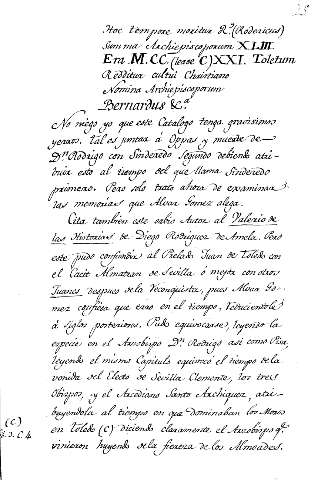 25
Hoc tempore moritus R.s (Rodericus)
Summa Archiepiscoporum XLIII.
Era M.CC.(lease C)XXI. Toletum
Redditur cultui Christiano
Nomina Archiepiscoporum
Bernardus &c.a
No niego yo que este Catalogo tenga gravisimos
yerros, tal es juntar á Oppas y muerte de
Dn. Rodrigo con Sinderedo segundo debiendo atri-
buir esto al tiempo del que llama Sinderedo
primero. Pero solo trato ahora de examinar
las memorias que Alvar Gomez alega.
Cita tambien este sabio Autor al Valerio de
las Historias de Diego Rodriguez de Amela. Pero
este pudo confundir al Prelado Juan de Toledo con
el Cacit Almatran de Sevilla ó mejor con otros
Juanes despues de la Reconquista, pues Alvar Go-
mez confiesa que erro en el tiempo, reduciendole
á siglos posteriores. Pudo equivocarse, leyendo la
especie en el Arzobispo Dn. Rodrigo asi como Pisa,
leyendo el mismo Capitulo equivocó el tiempo de la
venida del Electo de Sevilla Clemente, los tres
Obispos, y el Arcediano Santo Archiquez, atri-
buyendola al tiempo en que dominaban los Moros
en Toledo (C) diciendo claramente el Arzobispo q.e
vinieron huyendo de la fiereza de los Almoades.
(C)